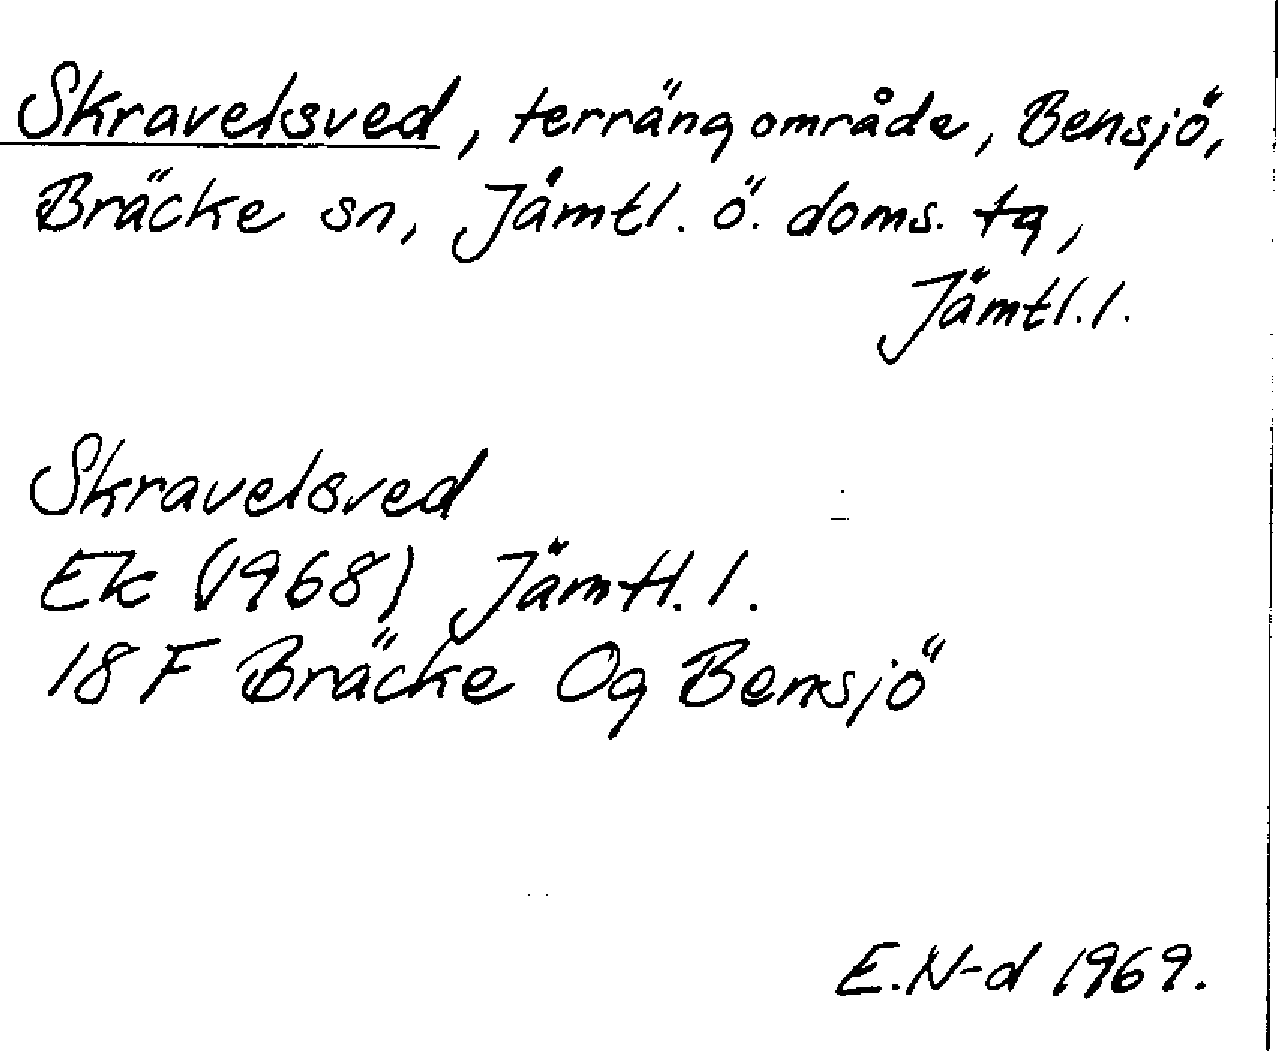 Skravelsved, terrängområde, Bensjö,
Bräcke sn, Jämtl. ö. doms. tg,
Jämtl. l.
Skravelsved
Ek (1968) Jämtl. l.
18 F Bräcke Og Bensjö
E.N-d 1969.